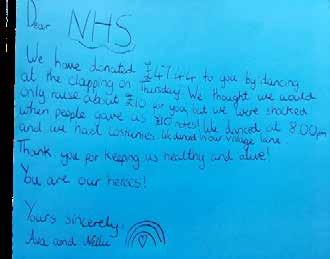 Dear NHS
We have donated £47.44 to you by dancing
at the clapping on Thursday. We thought we would
only raise about £10 for you, but we were shocked
when people gave us £10 notes! We danced at 8.00pm
and we had costumes. We danced in our village lane.
Thank you for keeping us healthy and alive!
You are our heroes!
Yours sincerely,
Ava and Nellie